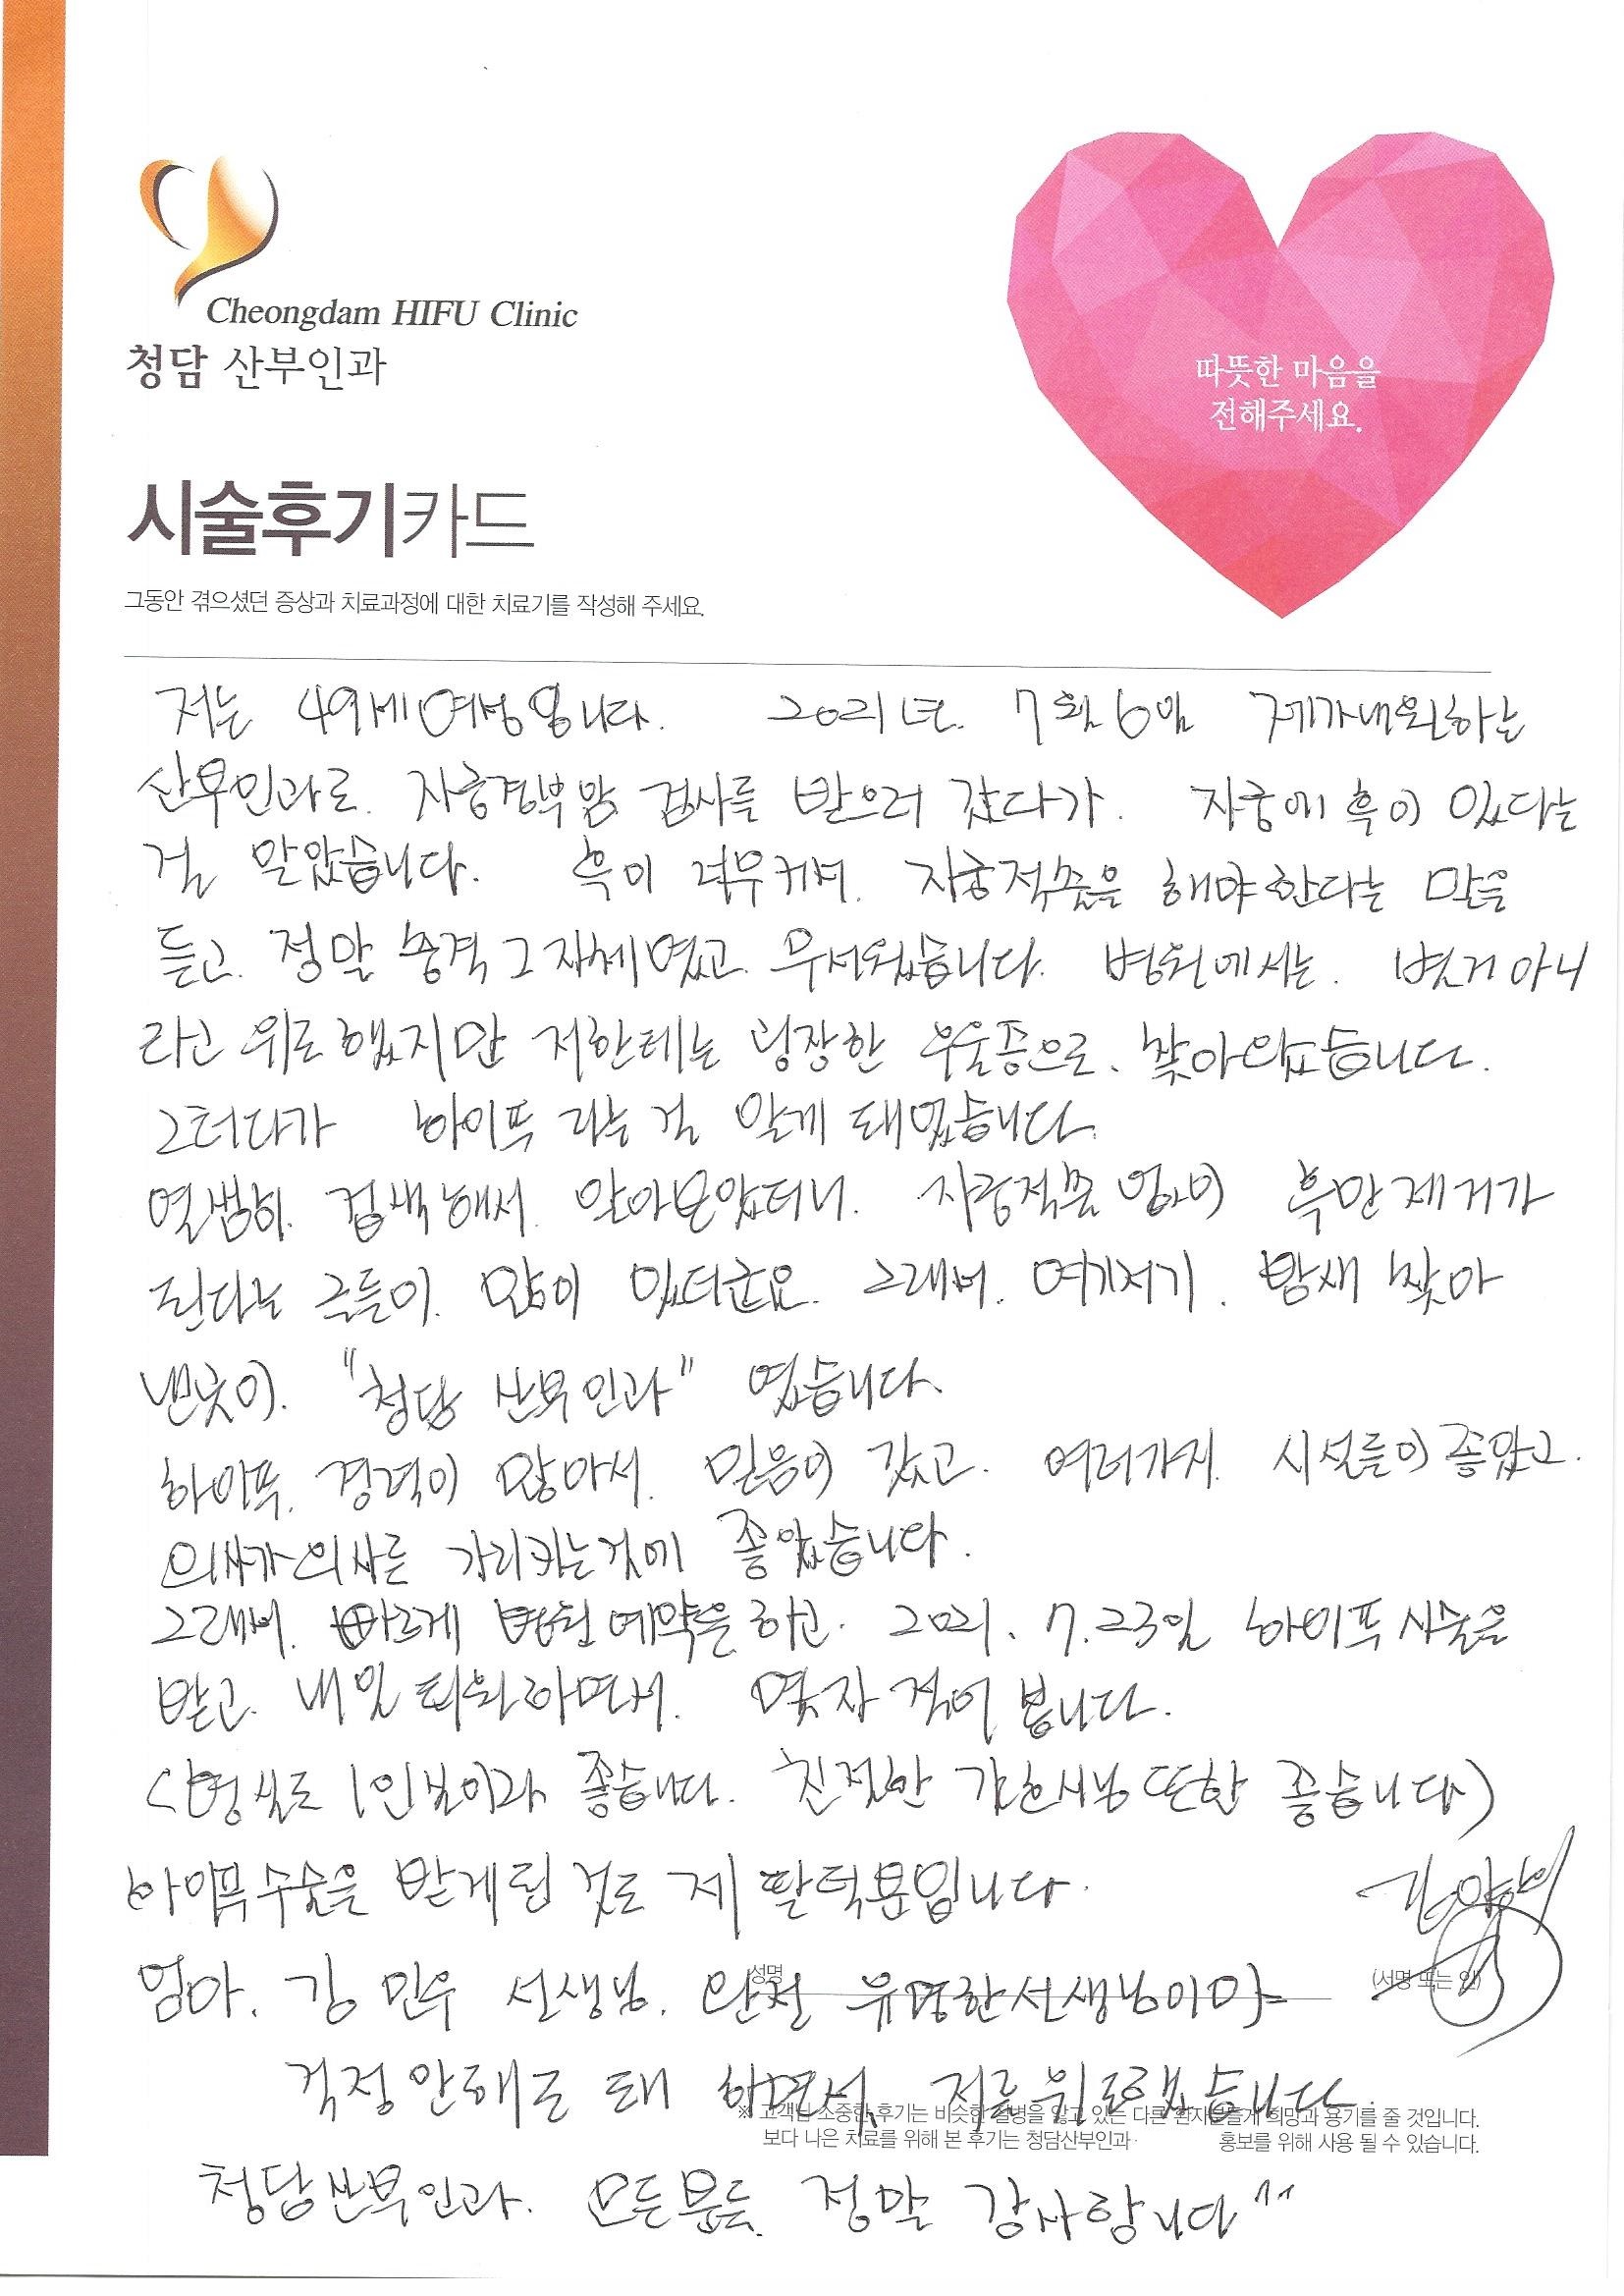 Cheongdam HIFU Clinic
청담 산부인과
따뜻한 마음을
전해주세요.
시술후기카드
그동안 겪으셨던 증상과 치료과정에 대한 치료기를 작성해 주세요.
저는 49세여성입니다. 2021년. 7월6일 제가내원하는
산부인과로. 자궁경부암 검사를 받으러 갔다가. 자궁에 혹이 있다는
걸 알았습니다. 혹이 너무커서. 자궁적출을 해야한다는 말을
듣고. 정말 충격 그 자체였고. 무서웠습니다. 병원에서는. 별거아니
라고 위로했지만 저한테는 굉장한 우울증으로. 찾아왔습니다.
그러다가 하이푸 라는걸 알게 돼었습니다.
열씸히. 검색해서. 알아보았더니. 자궁적출 없이 혹만제거가
된다는 글들이. 많이 있더군요. 그래서. 여기저기. 밤새 찾아
낸곳이. "청담 산부인과" 였습니다.
하이푸. 경력이 많아서. 믿음이 갔고. 여러가지. 시설들이 좋았고.
의사가 의사를 가리키는것에 좋았습니다.
그래서. 빠르게 병원예약을 하고. 2021. 7. 23일 하이푸시술을
받고. 내일 퇴원하면서. 몇자 적어 봅니다.
(병실도 1인실이라 좋습니다. 친절한 간호사님 또한 좋습니다)
하이푸수술을 받게된 것도 제 딸덕분입니다.
엄마. 김 민우 선생님. 완전 유명한선생님이야
성명
(서명 또는 인)
걱정안해도 돼 하면서. 저를위로했습니다.
※ 고객님 소중한 후기는 비슷한 질병을 앓고 있는 다른 환자분들께 희망과 용기를 줄 것입니다.
보다 나은 치료를 위해 본 후기는 청담산부인과 홍보를 위해 사용 될 수 있습니다.
청담산부인과. 모든분들. 정말 감사합니다^^